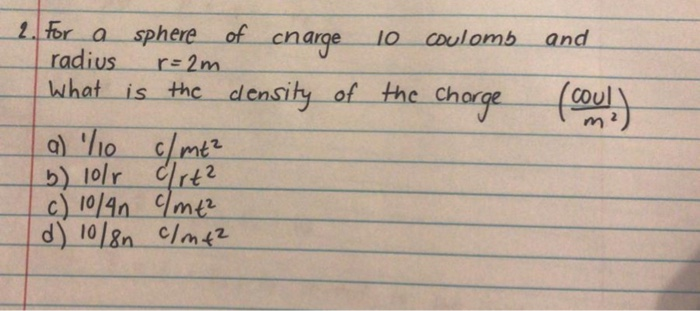 2. For a sphere of cnarge 10 coulomb and
radius r=2m
What is the density of the charge (coul/m²)
a) 1/10 c/mt²
b) 10/r c/rt²
c) 10/4n c/mt²
d) 10/8n c/mt²